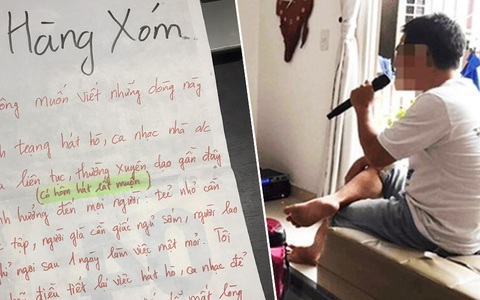 Hàng Xóm
ông muốn viết những dòng này
h trạng hát hò, ca nhạc nhà a/c
a liên tục, thường xuyên dạo gần đây
(Có hôm hát rất muộn)
nh hưởng đến mọi người: trẻ nhỏ cần
tập, người già cần giấc ngủ sớm, người lao
hỉ ngơi sau 1 ngày làm việc mệt mỏi. Tôi
điều tiết lại việc hát hò, ca nhạc để
mất lòng